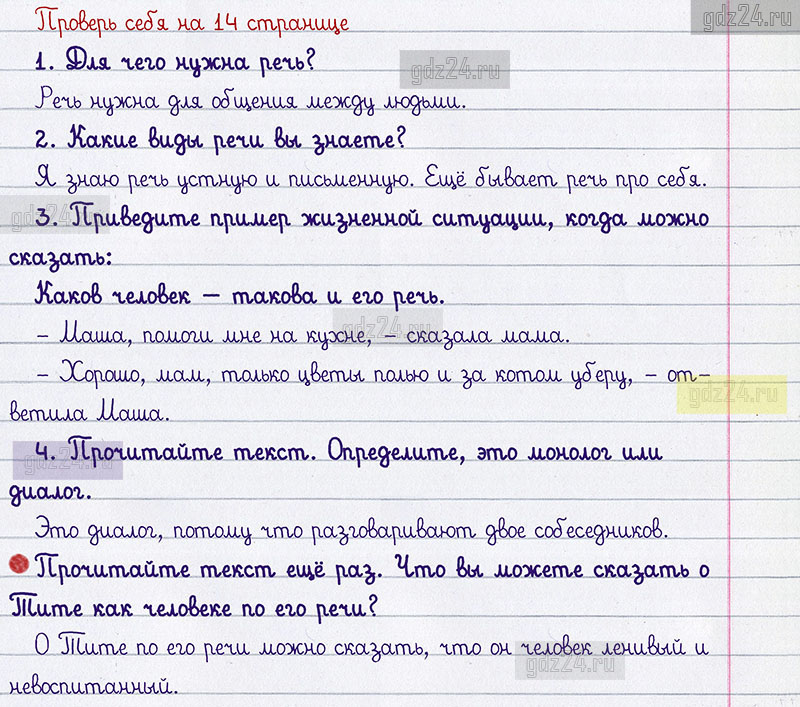 Проверь себя на 14 странице
gdz24.ru
1. Для чего нужна речь?
gdz24.ru
Речь нужна для общения между людьми.
2. Какие виды речи вы знаете?
Я знаю речь устную и письменную. Ещё бывает речь про себя.
gdz24.ru
3. Приведите пример жизненной ситуации, когда можно
сказать:
Каков человек – такова и его речь.
gdz24.ru
– Маша, помоги мне на кухне, – сказала мама.
– Хорошо, мам, только цветы полью и за котом уберу, – от–
gdz24.ru
ветила Маша.
gdz24.ru
4. Прочитайте текст. Определите, это монолог или
диалог.
Это диалог, потому что разговаривают двое собеседников.
Прочитайте текст ещё раз. Что вы можете сказать о
Тите как человеке по его речи?
О Тите по его речи можно сказать, что он человек ленивый и
gdz24.ru
невоспитанный.